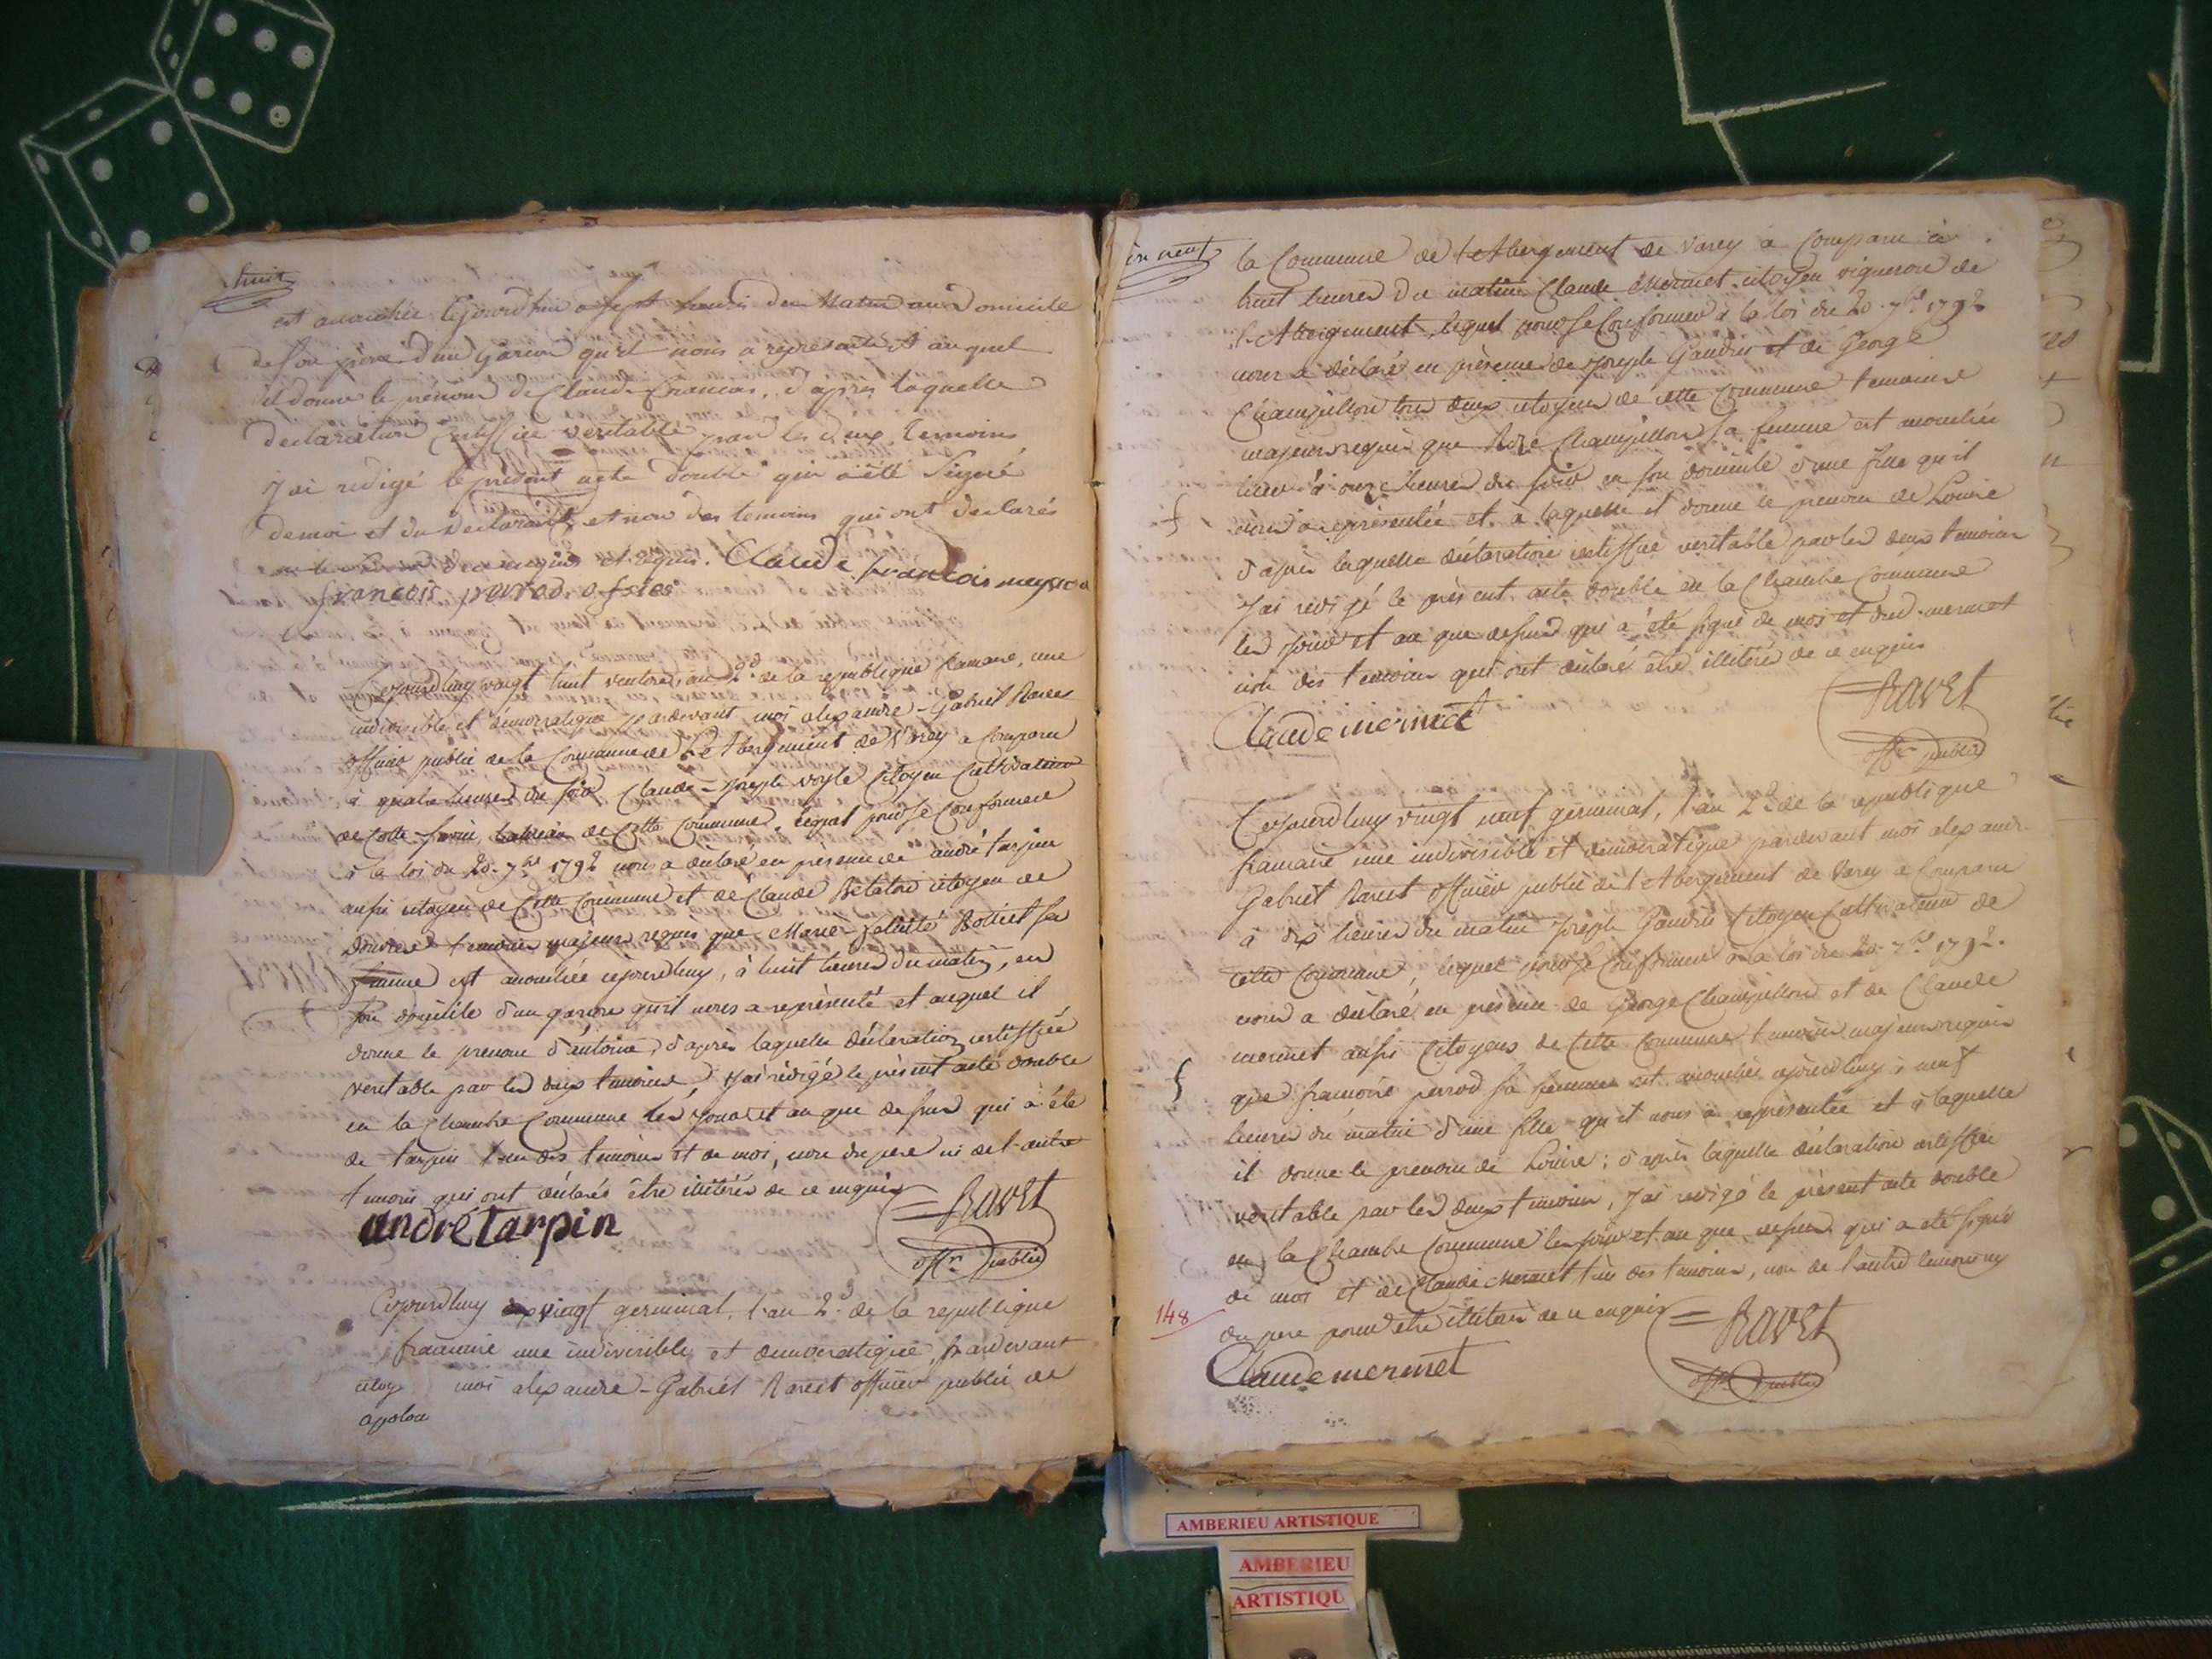 huit
est accouchée cejourd'hui a sept heures du Matin au Domicile
de son père d'un Garcon qu'il nous a représenté et auquel
il donne le prénom de Claude francois, d'apres laquelle
declaration certiffiée veritable par les deux temoins
J'ai redigé le présent acte double qui a été Signé
de moi et du declarant, et non des temoins qui ont declarés
de ce enquis et requis. Claude francois
francois perrod offier
Cejourdhuy vingt huit ventose, an 2d de la republique francaise, une
indivisible et democratique pardevant moi alexandre-Gabriel Ravet
officier public de la Commune de L'Abergement de Varey a Comparu
à quatre heures du soir Claude-Joseph voyle Citoyen Cultivateur
de cette Commune, lequel pour se Conformer
à la loi du 20. 7bre 1792 nous a déclaré en présence de andré tarpin
aussi citoyen de Cette Commune et de Claude citoyen de
temoins majeurs requis que Marie-felicité Bottet sa
femme est accouchée cejourdhuy, à huit heures du matin, en
son domicile d'un garcon qu'il nous a représenté et auquel il
donne le prenom d'antoine, d'après laquelle déclaration certiffiée
veritable par les deux temoins, J'ai rédigé le présent acte double
en la Chambre Commune les Jour et an que dessus qui a été
de tarpin l'un des temoins et de moi, non du pere ni de l'autre
temoins qui ont déclarés être illitérés de ce enquis
RAVET
andré Tarpin
offer Public
Cejourdhuy vingt germinal, l'an 2d de la republique
francaise une indivisible et democratique, pardevant
moi alexandre-Gabriel Ravet officier public de
la Commune de l'Abergement de Varey a Comparu à
huit heures du matin Claude Mermet citoyen vigneron de
l'Abergement, lequel pour se Conformer à la loi du 20. 7bre 1792
nous a déclaré en présence de Joseph Gaudin et de George
Champillon tous deux citoyens de cette Commune temoins
majeurs requis que Champillon sa femme est accouchée
hier à onze heures du soir en son domicile d'une fille qu'il
nous a représentée et à laquelle il donne le prenom de Louise
d'après laquelle déclaration certiffiée veritable par les deux temoins
J'ai redigé le présent acte double en la Chambre Commune
les Jour et an que dessus qui a été signé de moi et dud. mermet
non des temoins qui ont déclaré être illitérés de ce enquis
RAVET
Claude mermet
offer public
Cejourdhuy vingt neuf germinal, l'an 2d de la republique
francaise une indivisible et democratique pardevant moi alexandre
Gabriel Ravet officier public de l'Abergement de Varey a Comparu
à dix heures du matin Joseph Gaudin Citoyen Cultivateur de
cette Commune, lequel pour se Conformer à la loi du 20. 7bre 1792.
nous a déclaré en présence de George Champillon et de Claude
mermet aussi Citoyens de Cette Commune temoins majeurs requis
que francoise perrod sa femme est accouchée cejourdhuy à neuf
heures du matin d'une fille qu'il nous a représentée et à laquelle
il donne le prenom de Louise; d'après laquelle déclaration certiffiée
veritable par les deux temoins, J'ai redigé le présent acte double
en la Chambre Commune les jour et an que dessus qui a été signé
de moi et de Claude Mermet l'un des temoins, non de l'autre temoin ny
148
du pere pour etre illitérés de ce enquis
RAVET
Claude mermet
offer Public
AMBERIEU ARTISTIQUE
AMBERIEU
ARTISTIQU